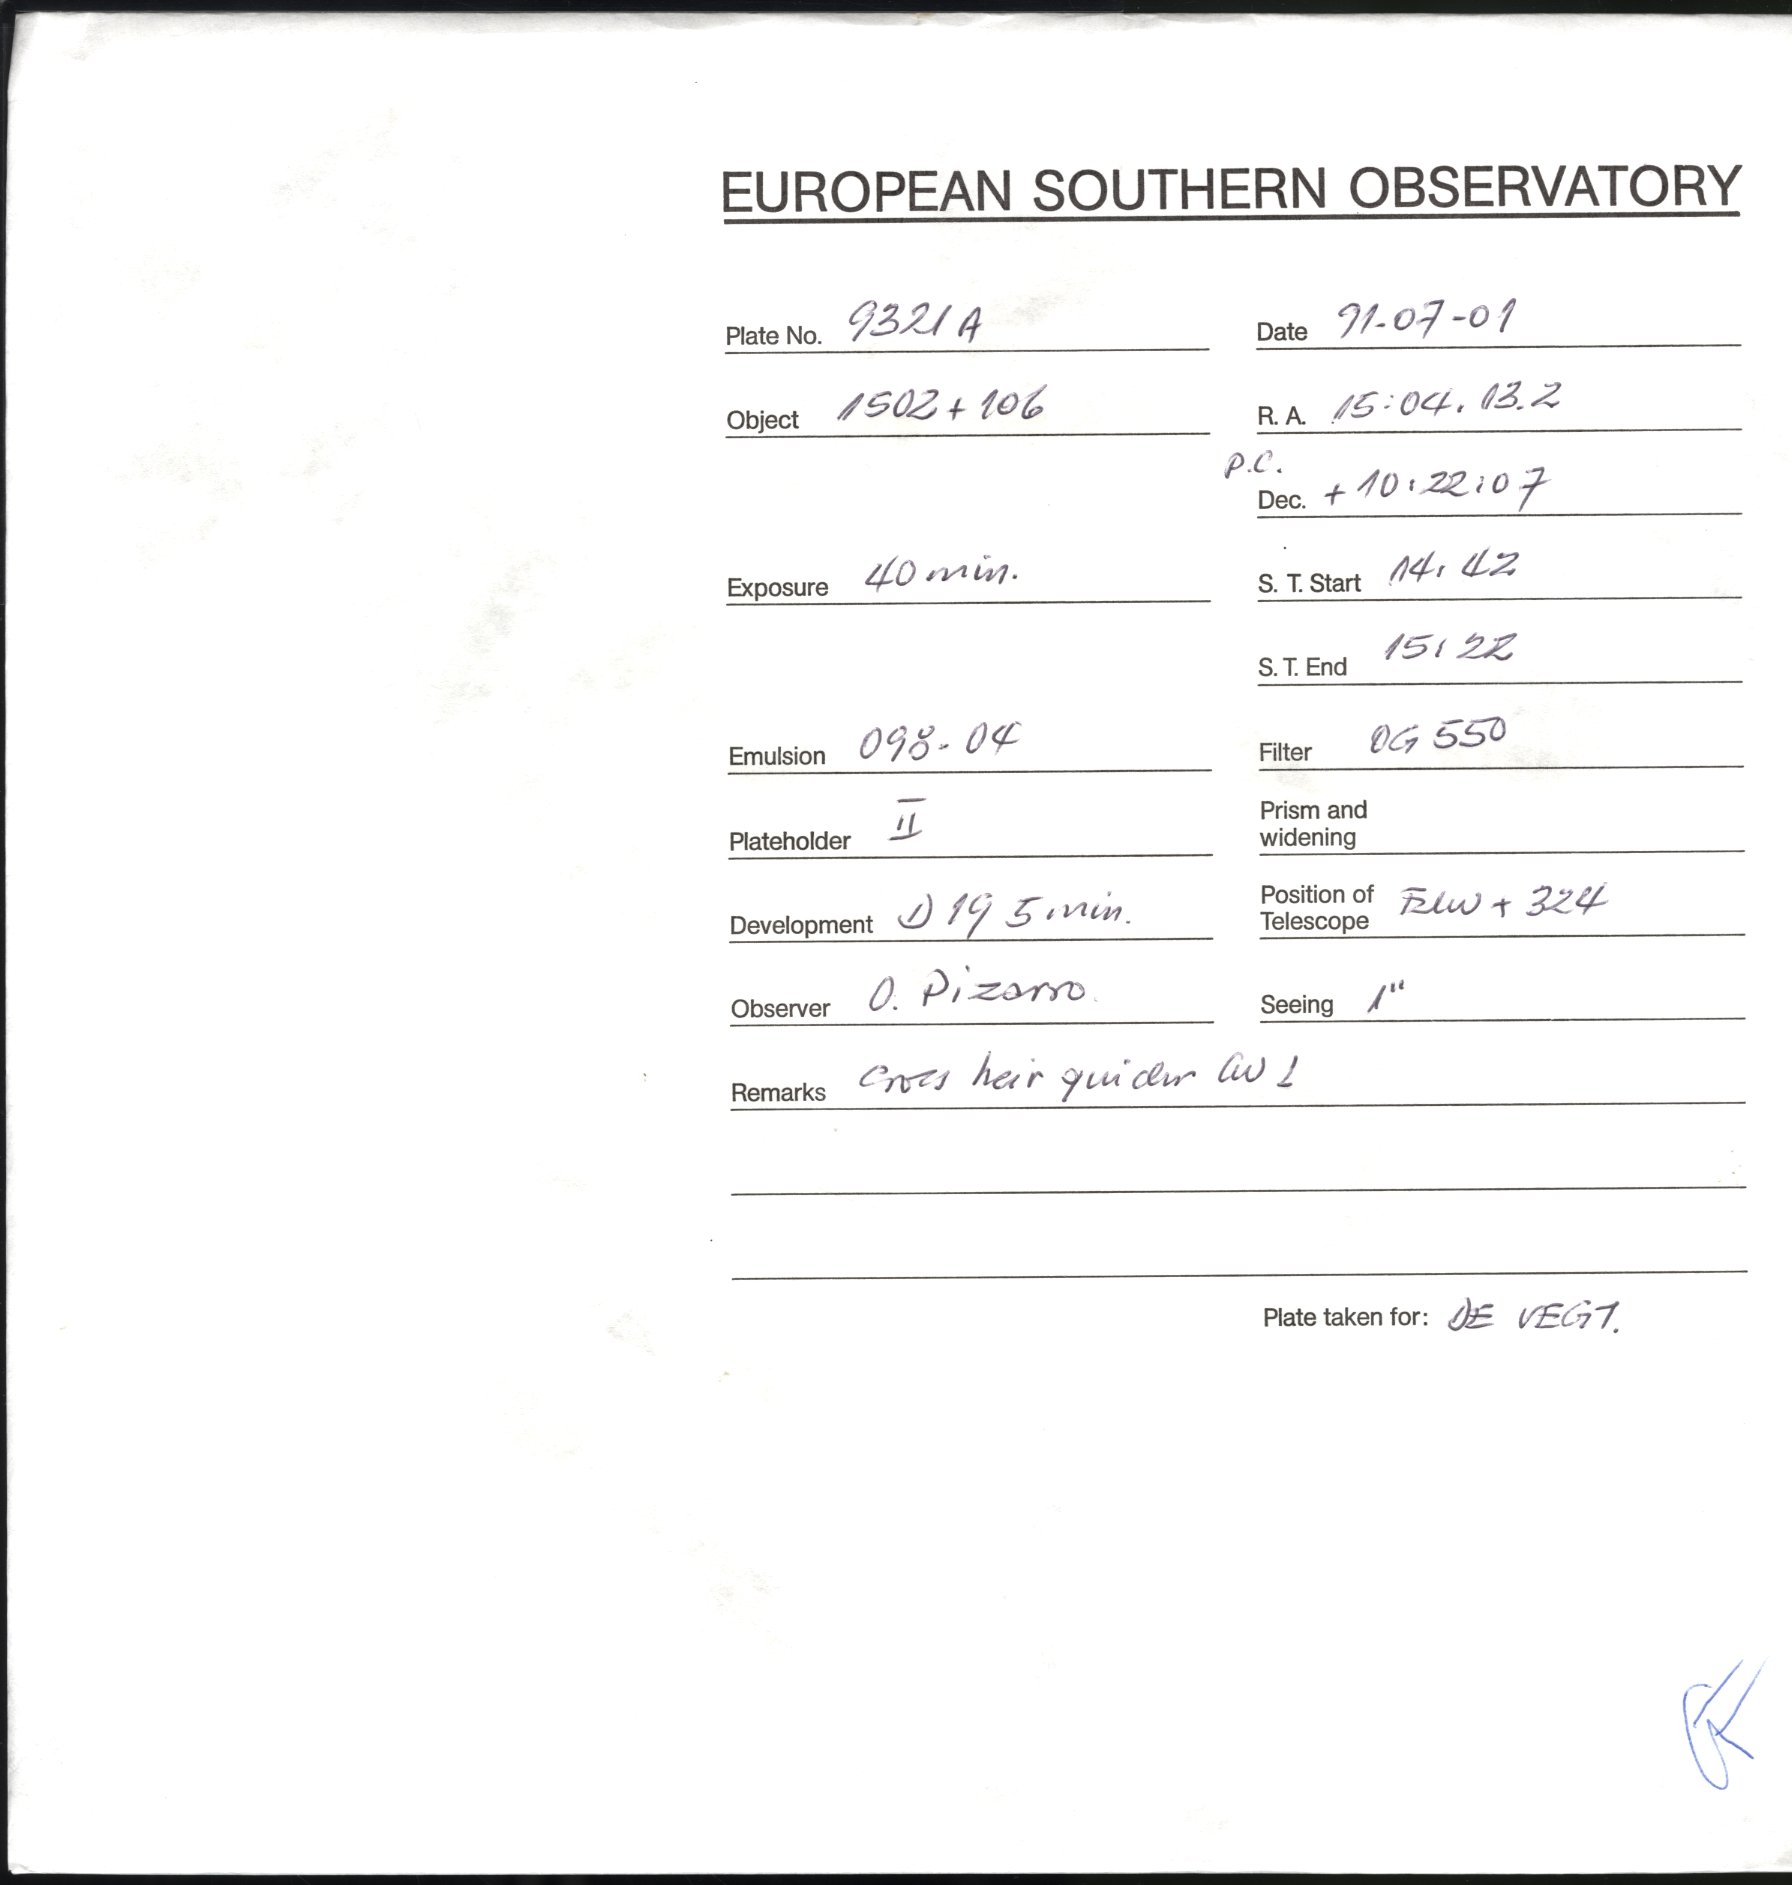 EUROPEAN SOUTHERN OBSERVATORY
Plate No. 9321A Date 91-07-01
Object 1502+106 R. A. 15:04. 13.2
P.C.
Dec. +10:22:07
Exposure 40 min. S. T. Start 14:42
S. T. End 15:22
Emulsion 098-04 Filter OG 550
Plateholder II Prism and
widening
Development D19 5 min. Position of
Telescope + 324
Observer O. Pizarro. Seeing 1"
Remarks Cross heir guider
Plate taken for: DE VEGT.